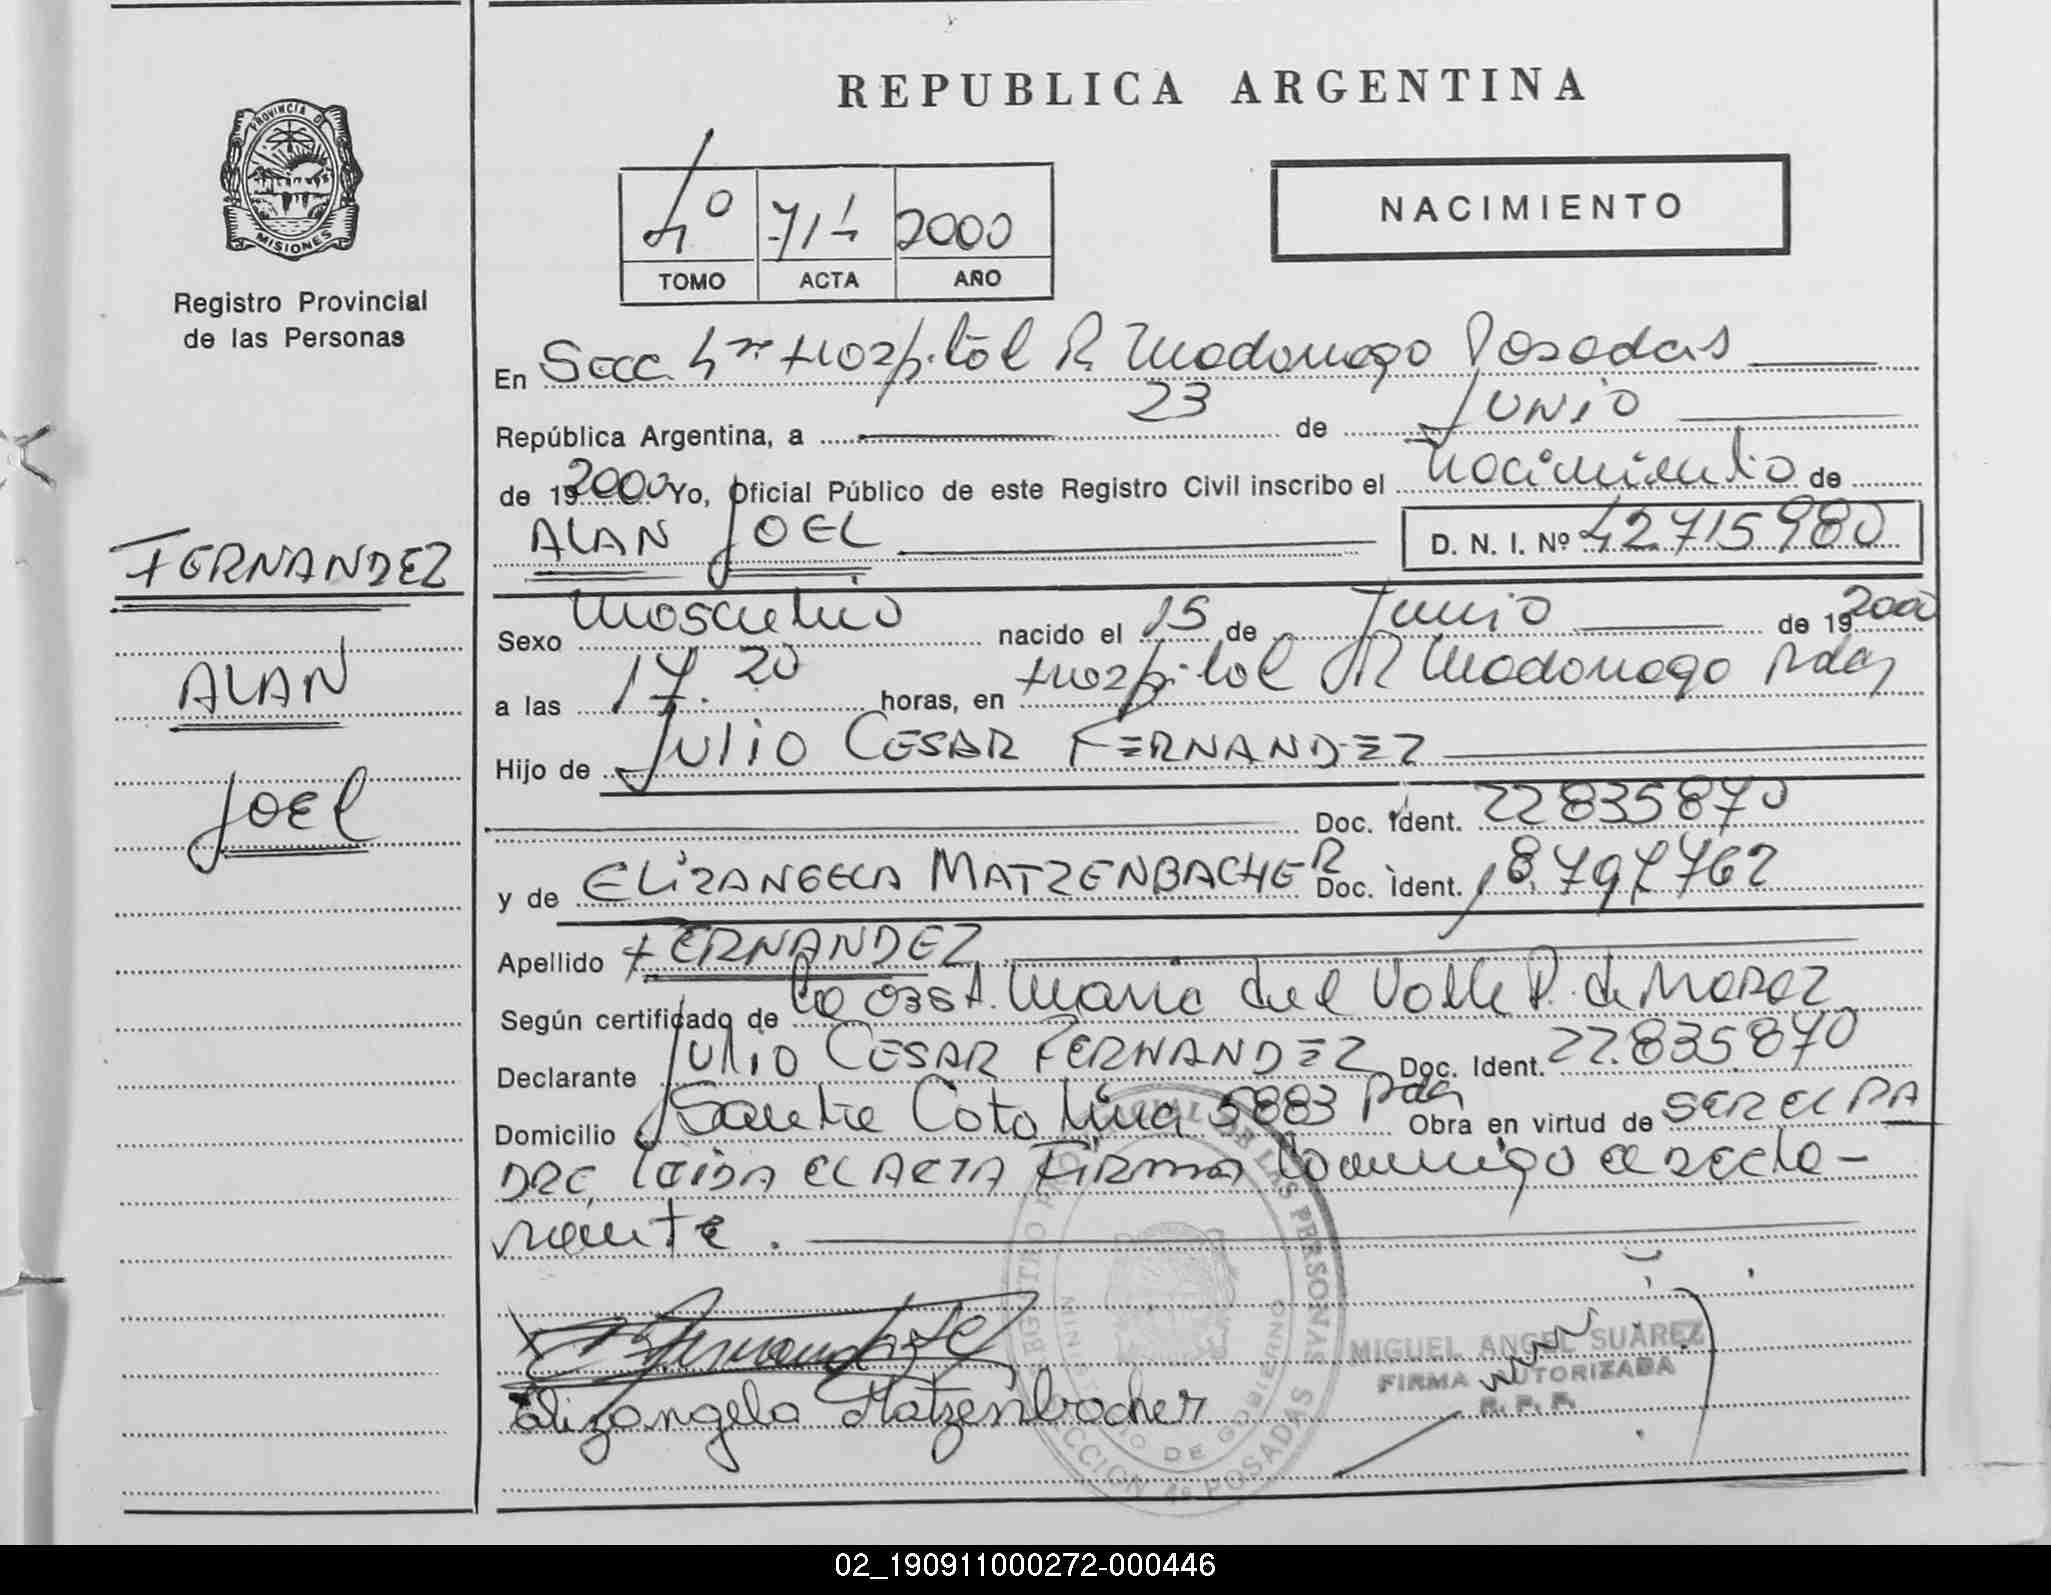 REPUBLICA ARGENTINA
PROVINCIA DE
MISIONES
Registro Provincial
de las Personas
4º 714 2000
TOMO ACTA AÑO
NACIMIENTO
En Secc 4ta Hospital R Madariaga Posadas
República Argentina, a 23 de JUNIO
de 192000 Yo, Oficial Público de este Registro Civil inscribo el nacimiento de
ALAN JOEL D. N. I. Nº 42.715980
FERNANDEZ
ALAN
JOEL
Sexo masculino nacido el 15 de Junio de 192000
a las 17.20 horas, en Hospital R Madariaga Pdas
Hijo de JULIO CESAR FERNANDEZ
Doc. Ident. 22835870
y de ELIZANGELA MATZENBACHER Doc. Ident.
Apellido FERNANDEZ
Según certificado de la Obst. Maria del Valle P. de
Declarante JULIO CESAR FERNANDEZ Doc. Ident. 22.835.870
Domicilio Santa Catalina 5883 Pdas Obra en virtud de SER EL PA
DRE, LEIDA EL ACTA FIRMA conmigo el decla-
rante.
Elizangela Matzenbacher
REGISTRO PROVINCIAL DE LAS PERSONAS
MINISTERIO DE GOBIERNO
SECCION 4ª POSADAS
MIGUEL ANGEL SUAREZ
FIRMA AUTORIZADA
R. P. P.
02_190911000272-000446